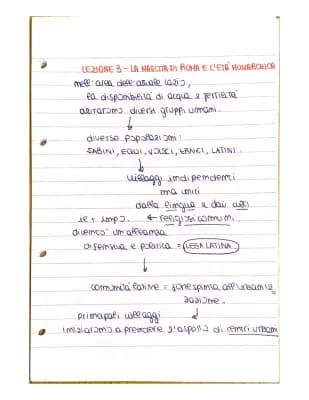 LEZIONE 3 - LA NASCITA DI ROMA E L'ETÀ MONARCHICA
nell'area dell'attuale lazio,
la disponibilità di acqua e fertilità
attirarono diversi gruppi umani.
diverse popolazioni:
SABINI, EQUI, VOLSCI, ERNICI, LATINI.
villaggi indipendenti
ma uniti
dalla lingua e dai culti
religiosi comuni.
difensiva e politica = LEGA LATINA
comunità latine = forte spinta all'urbaniz=
zazione.
principali villaggi
iniziarono a prendere l'aspetto di centri urbani